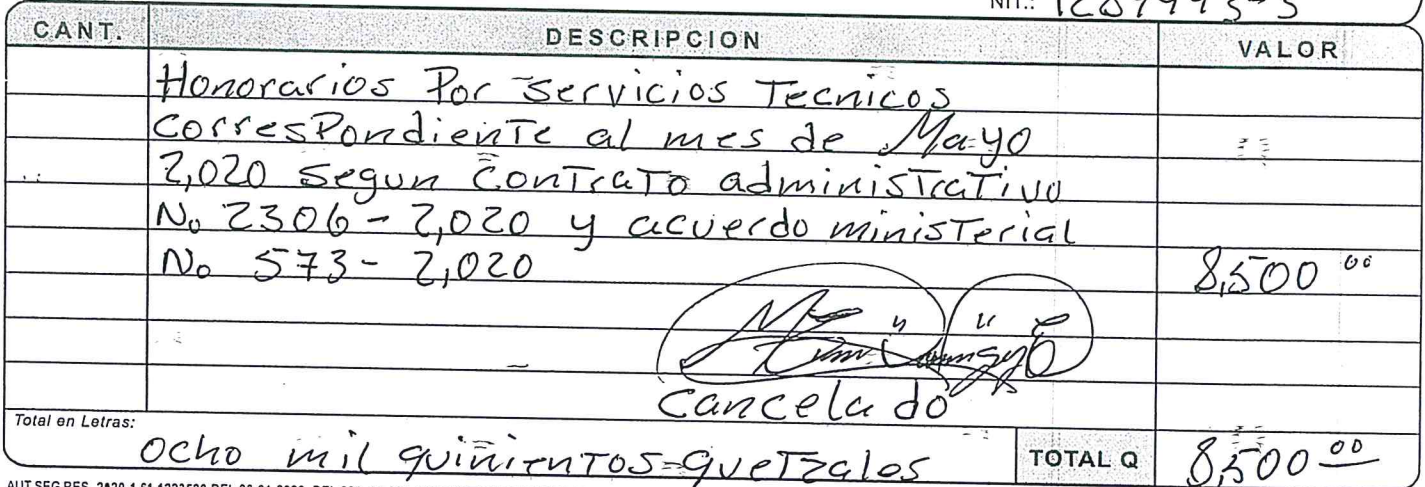 NIT.:
CANT. DESCRIPCION VALOR
Honorarios Por Servicios Tecnicos
corresPondienTe al mes de Mayo
2,020 segun ConTraTo adminisTraTivo
No 2306-2,020 y acuerdo minisTerial
No 573-2,020 8,500 00
cancelado
Total en Letras:
ocho mil quinienTos=queTzales TOTAL Q 8,500 00